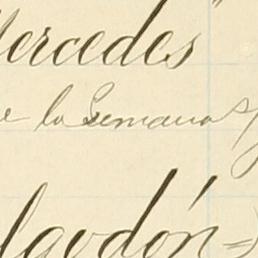 Mercedes"
de la Semana
Algodón=